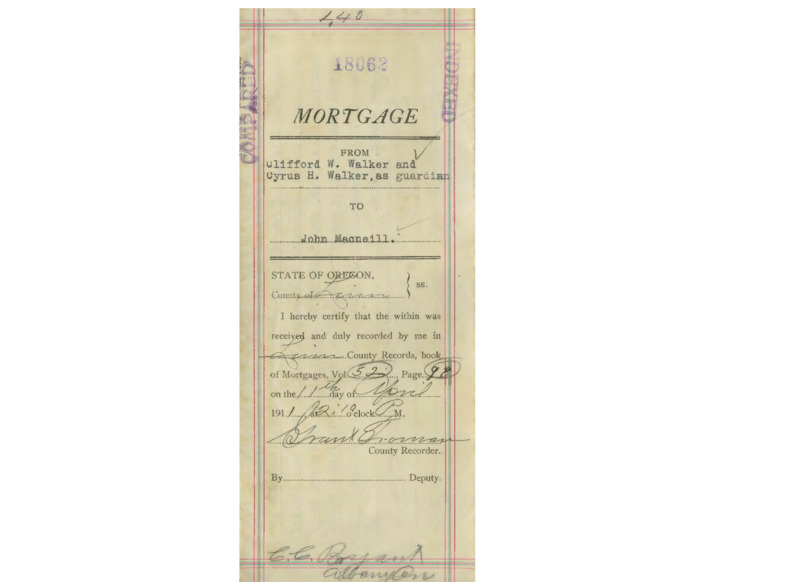 1,40
18062
COMPARED
INDEXED
MORTGAGE
FROM
Clifford W. Walker and
Cyrus H. Walker, as guardian
TO
John Macneill.
STATE OF OREGON,
County of Linn } ss.
I hereby certify that the within was
received and duly recorded by me in
Linn County Records, book
of Mortgages, Vol. 52, Page 98
on the 11th day of April
1911 o'clock P. M.
Grant Froman
County Recorder.
By Deputy.
C.C. Bryant
Albany Or